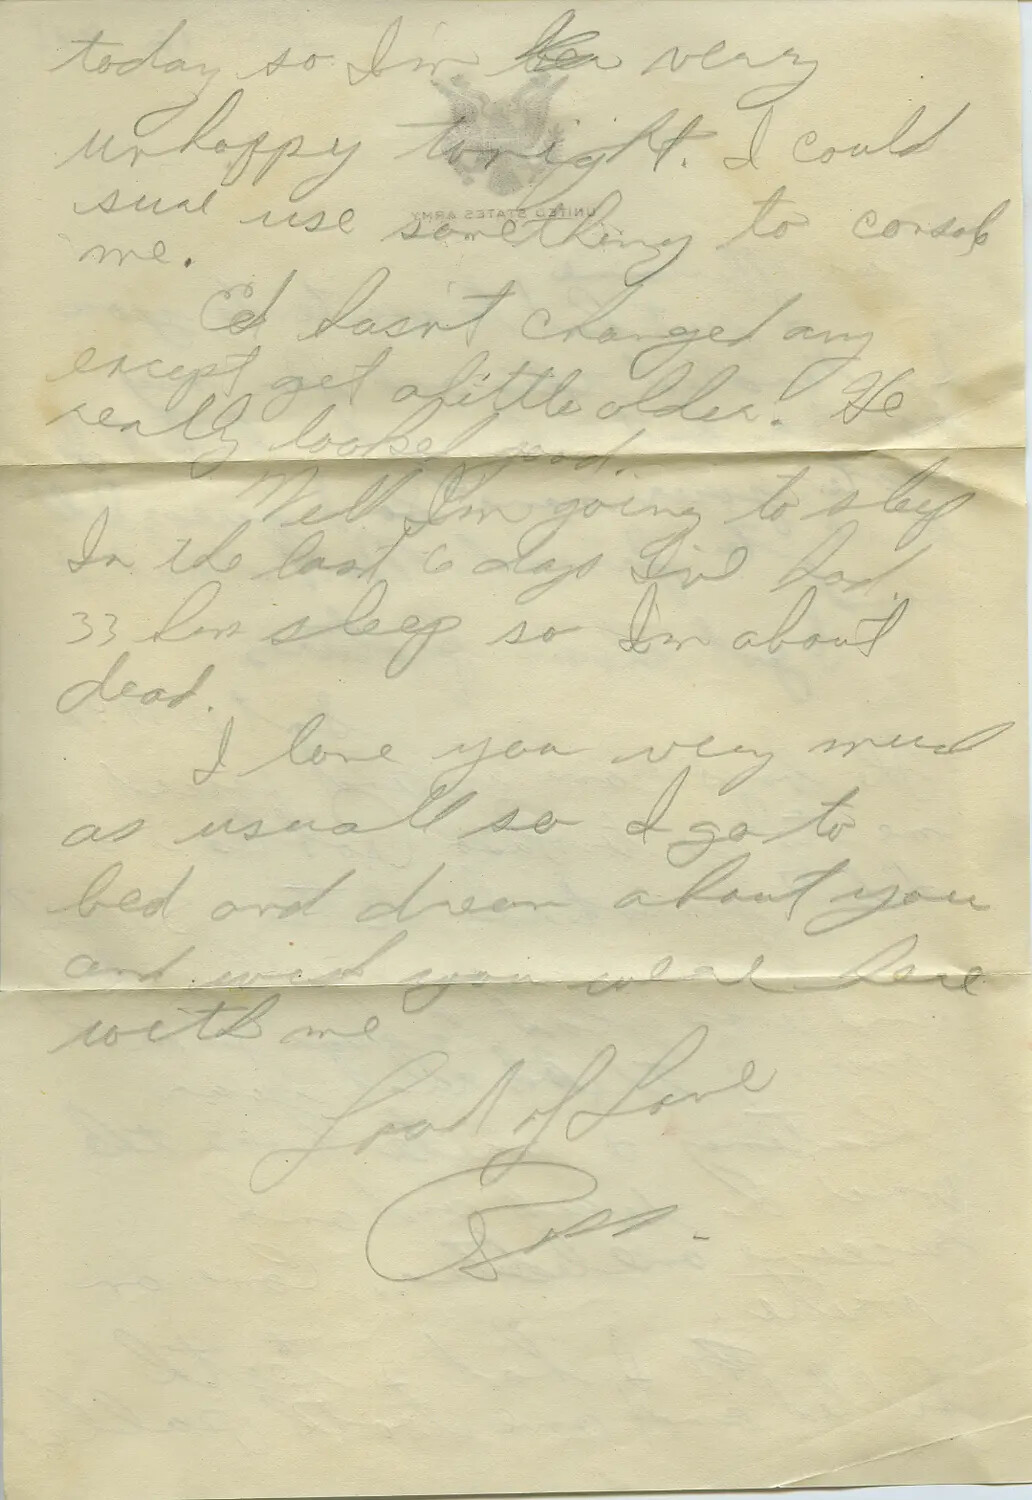 today so I'm very
unhappy tonight. I could
UNITED STATES ARMY
sure use something to console
me.
Ed hasn't changed any
except get a little older. He
really looked good.
Well I'm going to sleep
In the last 6 days I've had
33 hrs sleep so I'm about
dead.
I love you very much
as usuall so I go to
bed and dream about you
and wish you were here
with me
Loads of Love